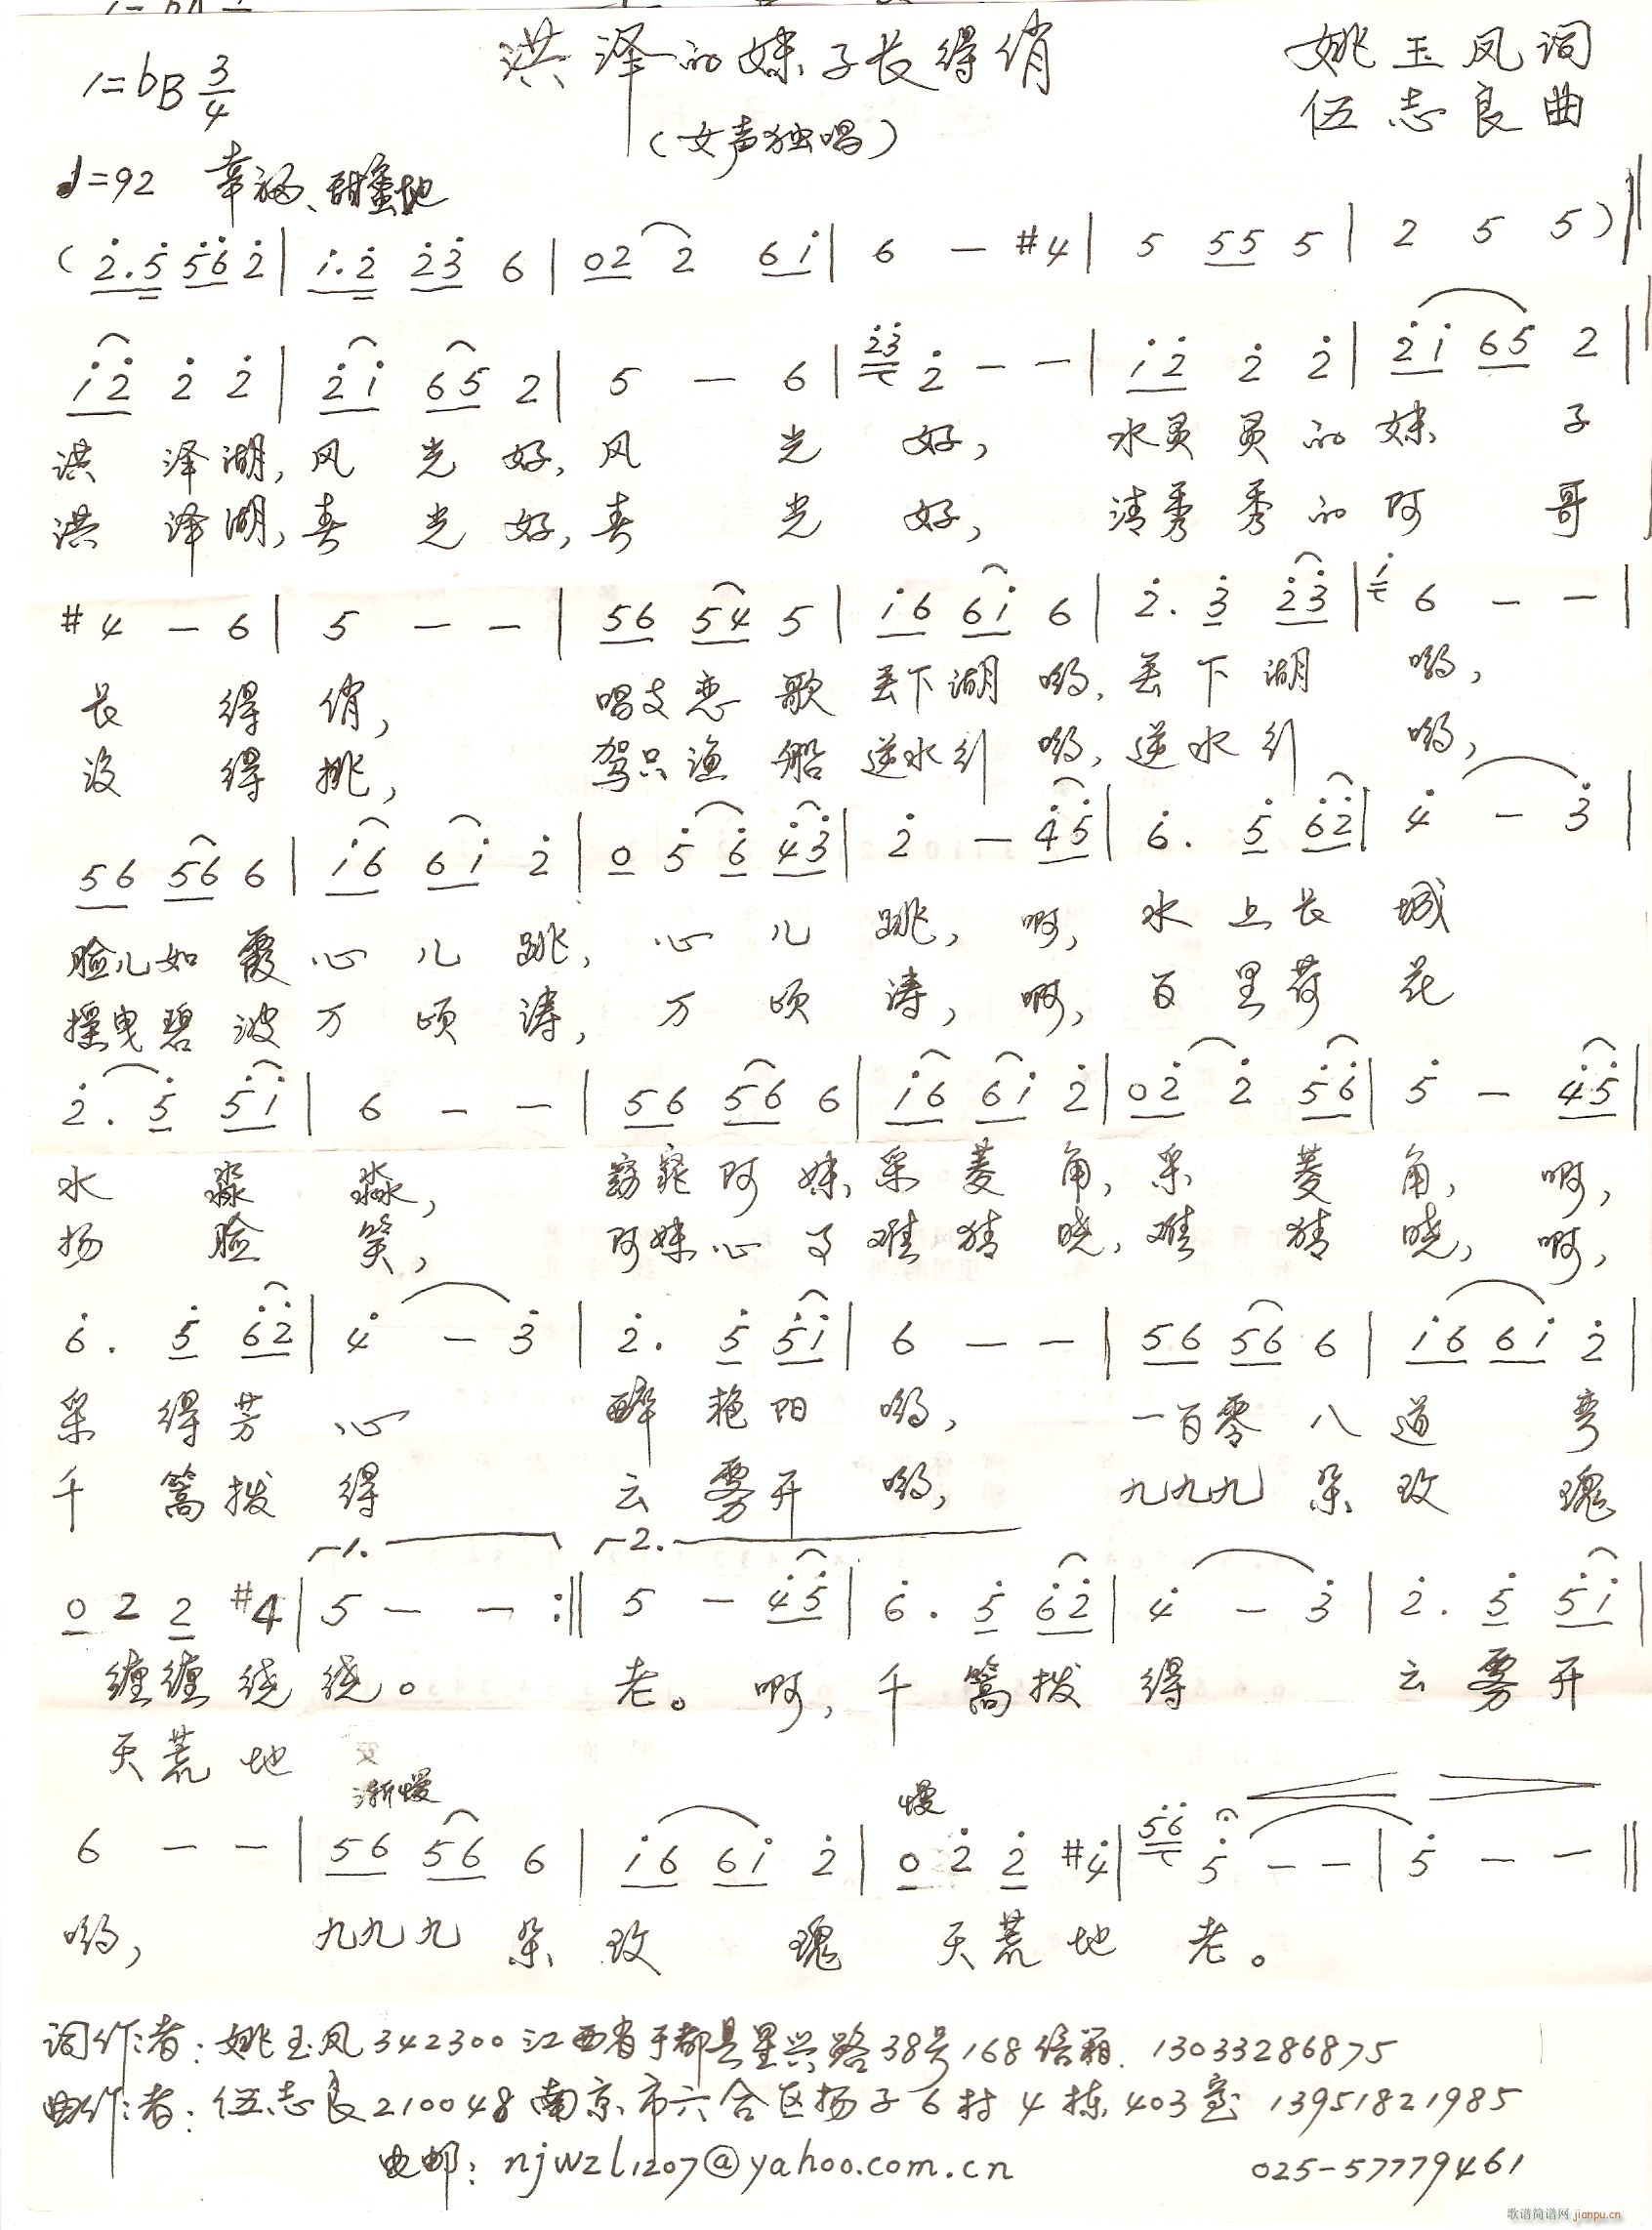 洪泽的妹子长得俏
姚玉凤词
1=bB 3/4
伍志良曲
(女声独唱)
♩=92 幸福、甜蜜地
(2̇.5̇ 5̇6̇ 2̇ | i.2̇ 2̇3̇ 6 | 02 2 6i | 6 — #4 | 5 55 5 | 2 5 5) ‖
i2̇ 2̇ 2̇ | 2̇i 65 2 | 5 — 6 | 2̇3̇ 2̇ — — | i2̇ 2̇ 2̇ | 2̇i 65 2 |
洪泽湖,风光好,风光好,水灵灵的妹子
洪泽湖,春光好,春光好,清秀秀的阿哥
#4 — 6 | 5 — — | 56 54 5 | i6 6i 6 | 2̇. 3̇ 2̇3̇ | i 6 — — |
长得俏,唱支恋歌丢下湖哟,丢下湖哟,
没得挑,驾只渔船逆水行哟,逆水行哟,
56 56 6 | i6 6i 2̇ | 0 5̇ 6̇ 4̇3̇ | 2̇ — 4̇5̇ | 6̇. 5̇ 6̇2̇ | 4̇ — 3̇ |
脸儿如霞心儿跳,心儿跳,啊,水上长城
摇曳碧波万顷涛,万顷涛,啊,百里荷花
2̇. 5̇ 5̇i | 6 — — | 56 56 6 | i6 6i 2̇ | 02̇ 2̇ 5̇6̇ | 5̇ — 4̇5̇ |
水淼淼,窈窕阿妹采菱角,采菱角,啊,
扬脸笑,阿妹心事难猜晓,难猜晓,啊,
6̇. 5̇ 6̇2̇ | 4̇ — 3̇ | 2̇. 5̇ 5̇i | 6 — — | 56 56 6 | i6 6i 2̇ |
采得芳心醉艳阳哟,一百零八道弯
千篙拨得云雾开哟,九九九朵玫瑰
1. 2.
0 2 2 #4 | 5 — — :‖ 5 — 4̇5̇ | 6̇. 5̇ 6̇2̇ | 4̇ — 3̇ | 2̇. 5̇ 5̇i |
缠缠绕绕。老。啊,千篙拨得云雾开
天荒地
渐慢 慢
6 — — | 56 56 6 | i6 6i 2̇ | 0 2̇ 2̇ #4̇ | 5̇6̇ 5̇ — — | 5̇ — — ‖
哟,九九九朵玫瑰天荒地老。
词作者:姚玉凤 342300 江西省于都县星兴路38号168信箱. 13033286875
曲作者:伍志良 210048 南京市六合区扬子6村4栋403室 13951821985
电邮:njwzl1207@yahoo.com.cn 025-57779461
歌谱简谱网 jianpu.cn